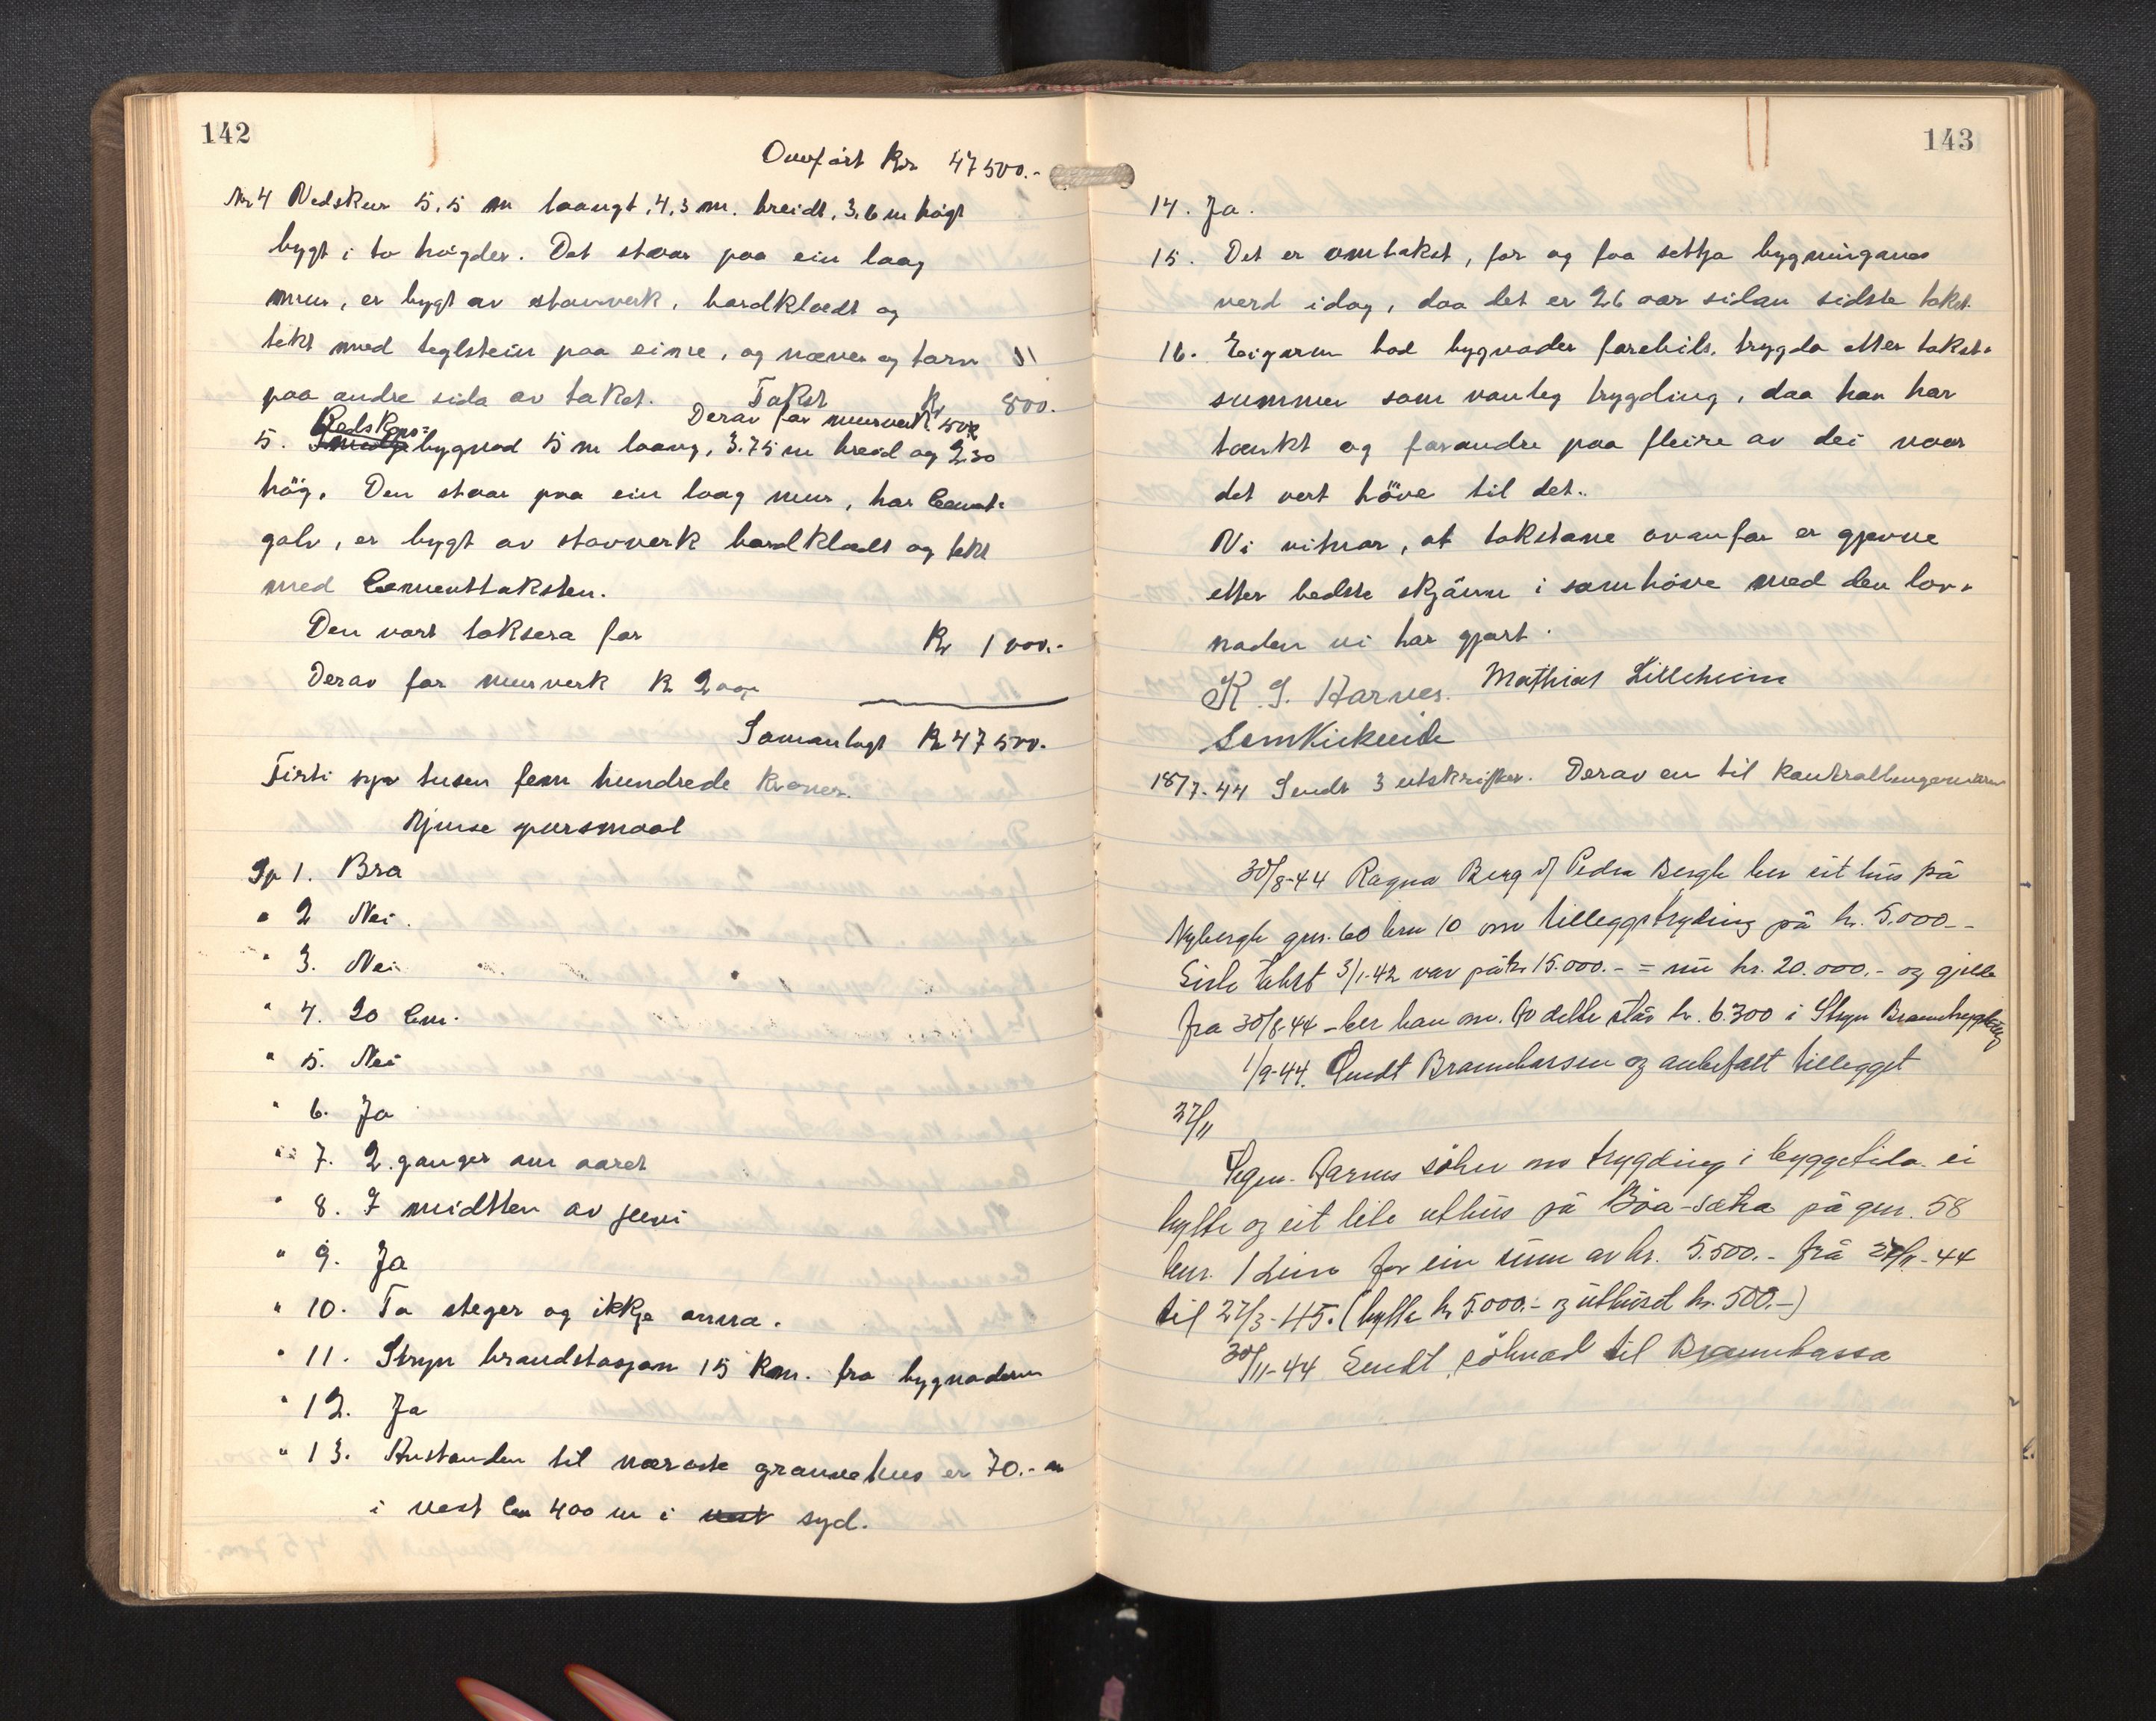 142
Overfört Kr 47500.-
Nr 4 Vedskur 5,5 m laangt, 4,3 m. breidt, 3,6 m högt
bygt i to högder. Det staar paa ein laag
mur, er bygt av stavverk, bordklædt og
tekt med teglstein paa eine, og næver og torv
paa andre sida av taket. Takst Kr 800.
Derav for murverk 50 kr
Redskaps=
5. Smidje bygnad 5 m laang, 3.75 m breid og 2.30
hög. Den staar paa ein laag mur, har Cemt=
golv, er bygt av stavverk bordklædt og tekt
med Cementtaksten.
Den vart taksera for Kr 1000.-
Derav for murverk K 200,-
Samanlagt Kr 47500.-
Førti syv tusen fem hundrede kroner.
Ymse spursmaal
Sp 1. Bra
" 2 Nei.
" 3. Nei
" 4. 20 Cm.
" 5. Nei
" 6. Ja
" 7. 2 ganger om aaret
" 8. I midtten av
" 9. Ja
" 10. To steger og ikkje anna.
" 11. Stryn brandstasjon 15 km. fra bygnadern
" 12. Ja
" 13. Avstanden til næraste grannehus er 70.- m
i vest Ca 400 m i vest syd.
143
14. Ja.
15. Det er omtakst, for og faa settja bygninganes
verd idag, daa det er 26 aar sidan sidste takst.
16. Eigaren bad bygnader forebils. trygda etter takst=
summer som vanleg trygding, daa han har
tænkt og forandre paa fleire av dei naar
det vert höve til det.
Vi vitnar, at takstane ovanfor er gjevne
etter bedste skjönn i samhöve med den lov=
naden vi har gjort.
K. S. Harnes. Mathias Lilleheim
18/7-44 Sendt 3 utskrifter. Derav en til
30/8-44 Ragna Berg f/ Peder Bergh ber eit hus på
Nybergh gnr. 60 bnr 10 om tilleggstryding på kr. 5.000.-
Siste takst 3/1-42 var på kr 15.000.- = nu kr. 20.000.- og gjelde
fra 30/8-44 - ber han om. Av dette står kr. 6.300 i Stryn Branntrygdelag
1/9-44. Sendt Brannkassen og anbefalt tillegget
27/11
Garnes söker om trygding i byggetida ei
hytte og eit lite uthus på Böa-sætra på gnr. 58
bnr. 1 for ein sum av kr. 5.500.- frå 27/11-44
til 27/3-45. (hytta kr 5.000.- og uthuset kr. 500.-)
30/11-44 Sendt söknad til Brannkassa